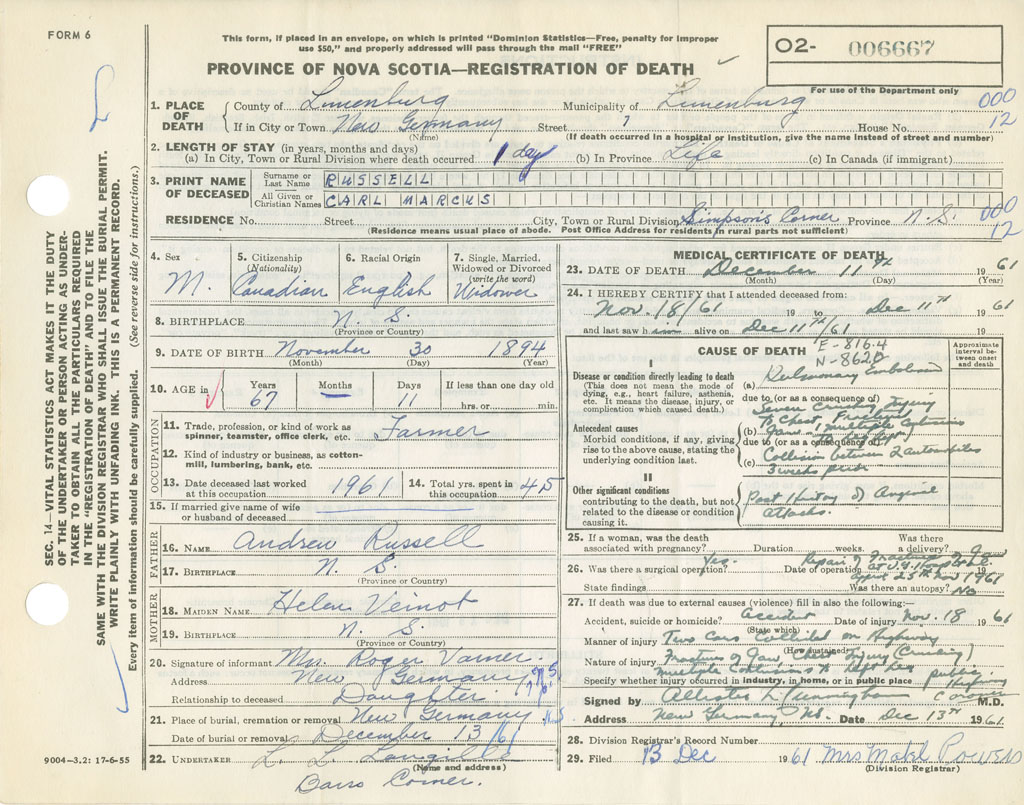 FORM 6
This form, if placed in an envelope, on which is printed "Dominion Statistics—Free, penalty for improper
use $50," and properly addressed will pass through the mail "FREE"
PROVINCE OF NOVA SCOTIA—REGISTRATION OF DEATH
O2- 006667
For use of the Department only
SEC. 14—VITAL STATISTICS ACT MAKES IT THE DUTY
OF THE UNDERTAKER OR PERSON ACTING AS UNDER-
TAKER TO OBTAIN ALL THE PARTICULARS REQUIRED
IN THE "REGISTRATION OF DEATH" AND TO FILE THE
SAME WITH THE DIVISION REGISTRAR WHO SHALL ISSUE THE BURIAL PERMIT.
WRITE PLAINLY WITH UNFADING INK. THIS IS A PERMANENT RECORD.
Every item of information should be carefully supplied. (See reverse side for instructions.)
1. PLACE OF DEATH County of Lunenburg Municipality of Lunenburg 000
If in City or Town New Germany Street House No. 12
(Name) (If death occurred in a hospital or institution, give the name instead of street and number)
2. LENGTH OF STAY (in years, months and days)
(a) In City, Town or Rural Division where death occurred 1 day (b) In Province Life (c) In Canada (if immigrant)
3. PRINT NAME OF DECEASED Surname or Last Name RUSSELL
All Given or Christian Names CARL MARCUS
RESIDENCE No. Street City, Town or Rural Division Simpson's Corner Province N.S. 000
(Residence means usual place of abode. Post Office Address for residents in rural parts not sufficient) 12
4. Sex M.
5. Citizenship (Nationality) Canadian
6. Racial Origin English
7. Single, Married, Widowed or Divorced (write the word) Widower
8. BIRTHPLACE N. S.
(Province or Country)
9. DATE OF BIRTH November 30 1894
(Month) (Day) (Year)
10. AGE in Years 67 Months — Days 11 If less than one day old hrs. or min.
OCCUPATION
11. Trade, profession, or kind of work as spinner, teamster, office clerk, etc. Farmer
12. Kind of industry or business, as cotton-mill, lumbering, bank, etc.
13. Date deceased last worked at this occupation 1961
14. Total yrs. spent in this occupation 45
15. If married give name of wife or husband of deceased
FATHER
16. NAME Andrew Russell
17. BIRTHPLACE N. S.
(Province or Country)
MOTHER
18. MAIDEN NAME Helen Veinot
19. BIRTHPLACE N. S.
(Province or Country)
20. Signature of informant Mrs. Roger Varner
Address New Germany
Relationship to deceased Daughter
21. Place of burial, cremation or removal New Germany N.S
Date of burial or removal December 13/61
22. UNDERTAKER L. L. Langille
(Name and address)
Barss Corner.
9004—3.2: 17-6-55
MEDICAL CERTIFICATE OF DEATH
23. DATE OF DEATH December 11th 1961
(Month) (Day) (Year)
24. I HEREBY CERTIFY that I attended deceased from:
Nov. 18/61 19 to Dec 11th 61
and last saw him alive on Dec 11th/61 19
CAUSE OF DEATH E-816.4
N-862
Approximate interval between onset and death
I
Disease or condition directly leading to death
(This does not mean the mode of dying, e.g., heart failure, asthenia, etc. It means the disease, injury, or complication which caused death.)
(a) Pulmonary Embolism
due to (or as a consequence of)
Severe Crushing Injury
To Chest Fractured
Antecedent causes
Morbid conditions, if any, giving rise to the above cause, stating the underlying condition last.
(b) Jaw multiple contusions
due to (or as a consequence of)
(c) Collision between 2 automobiles
3 weeks prior
II
Other significant conditions
contributing to the death, but not related to the disease or condition causing it.
Past History of Anginal
attacks.
25. If a woman, was the death associated with pregnancy? Duration weeks. Was there a delivery?
26. Was there a surgical operation? Yes. Date of operation Repair of Fractured Jaw
25th Nov 1961
State findings Was there an autopsy? No
27. If death was due to external causes (violence) fill in also the following:—
Accident, suicide or homicide? accident Date of injury Nov. 18 1961
(State which)
Manner of injury Two Cars Collided on Highway
(How sustained)
Nature of injury Fractures of Jaw Chest Injury (Crushing)
multiple contusions to left leg
Specify whether injury occurred in industry, in home, or in public place public Highway
Signed by Coroner M.D.
Address New Germany NS. Date Dec 13th 1961.
28. Division Registrar's Record Number
29. Filed 13 Dec 1961 Mrs Mabel
(Division Registrar)